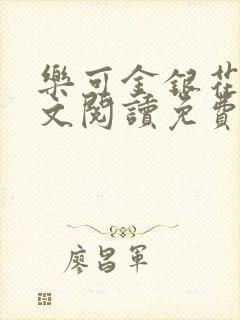 樂可金銀花
文閱讀免費
廖昌軍